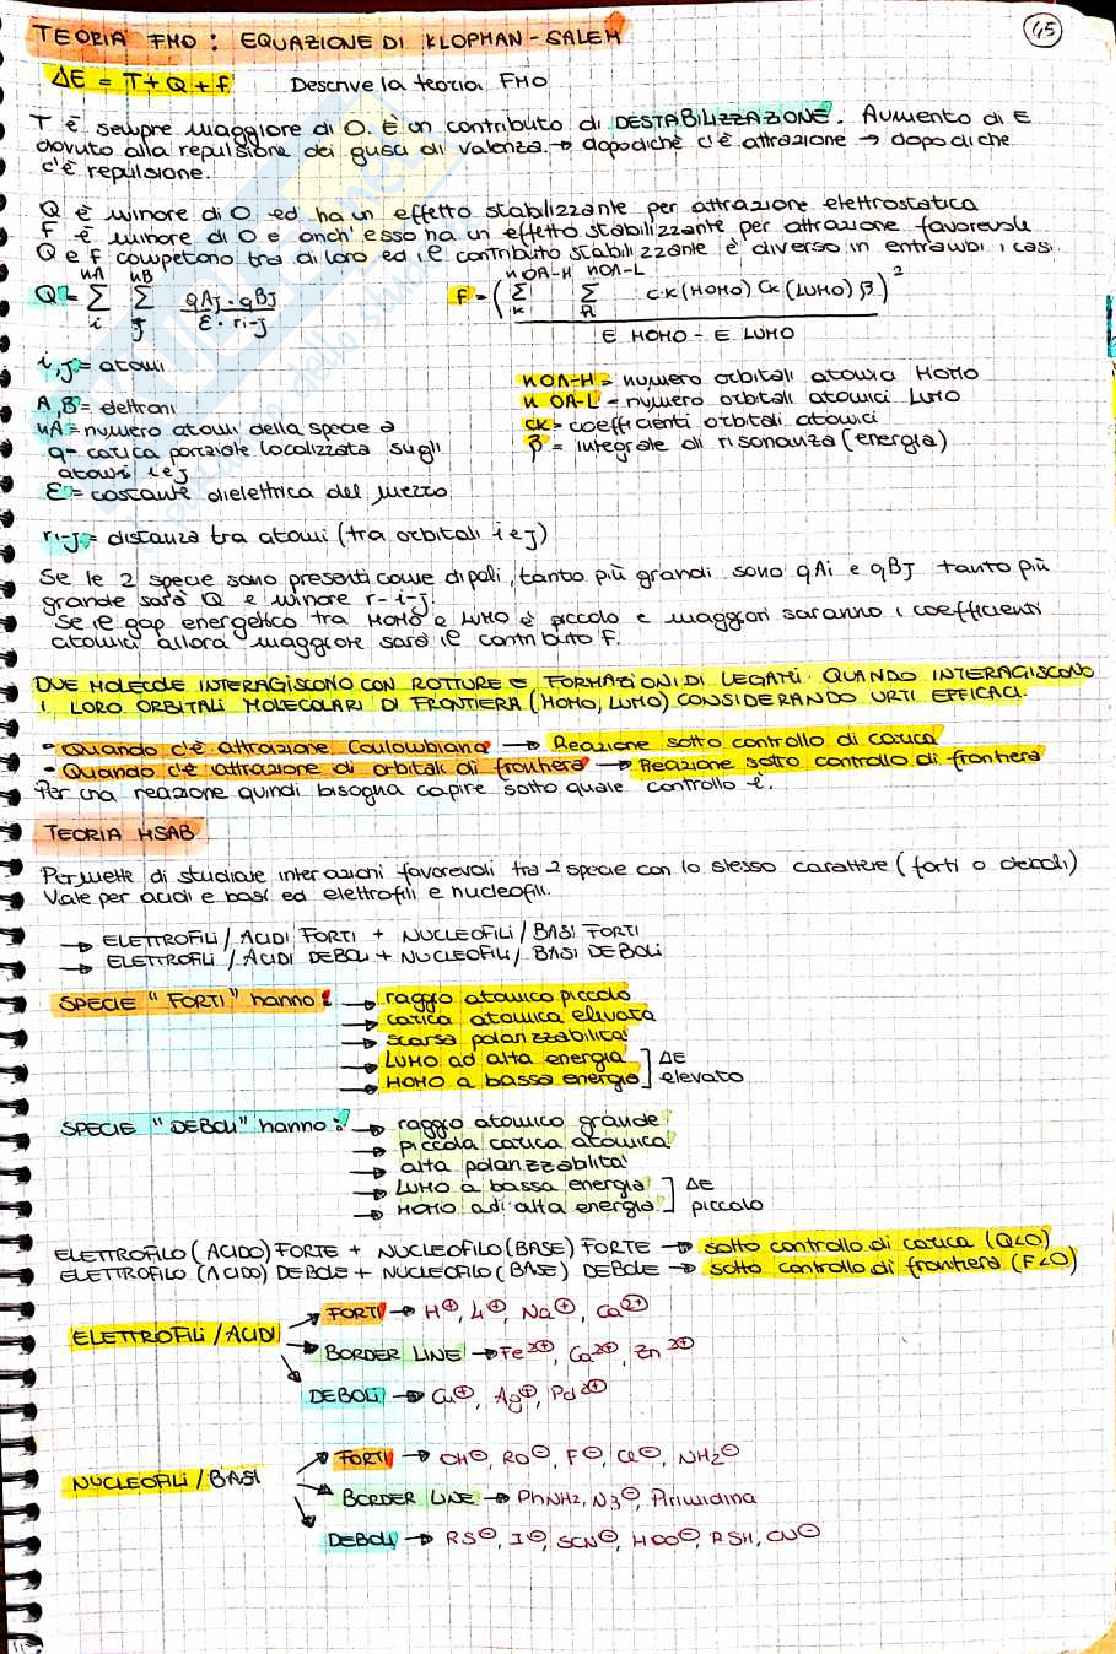 45
TEORIA FMO: EQUAZIONE DI KLOPMAN-SALEM
ΔE = T+Q+F Descrive la teoria FMO
T è sempre maggiore di 0. È un contributo di DESTABILIZZAZIONE. Aumento di E
dovuto alla repulsione dei gusci di valenza → dopodichè c'è attrazione → dopodiche
c'è repulsione.
Q è minore di 0 ed ha un effetto stabilizzante per attrazione elettrostatica
F è minore di 0 e anch'esso ha un effetto stabilizzante per attrazione favorevole
Q e F competono tra di loro ed il contributo stabilizzante è diverso in entrambi i casi.
Q = nA Σ i nB Σ j qAj · qBj / ε · ri-j
F = ( n OA-H Σ k nOA-L Σ ck (HOMO) Ck (LUMO) β )² / E HOMO - E LUMO
i,j = atomi
A,B = elettroni
nA = numero atomi della specie a
q = carica parziale localizzata sugli
atomi i e j
ε = costante dielettrica del mezzo
ri-j = distanza tra atomi (tra orbitali i e j)
nOA-H = numero orbitali atomici HOMO
n OA-L = numero orbitali atomici LUMO
ck = coefficienti orbitali atomici
β = integrale di risonanza (energia)
Se le 2 specie sono presenti come dipoli, tanto più grandi sono qAi e qBj tanto più
grande sarà Q e minore r-i-j.
Se il gap energetico tra HOMO e LUMO è piccolo e maggiori saranno i coefficienti
atomici allora maggiore sarà il contributo F.
DUE MOLECOLE INTERAGISCONO CON ROTTURE E FORMAZIONI DI LEGAMI QUANDO INTERAGISCONO
I LORO ORBITALI MOLECOLARI DI FRONTIERA (HOMO, LUMO) CONSIDERANDO URTI EFFICACI.
- Quando c'è attrazione Coulombiana → Reazione sotto controllo di carica
- Quando c'è attrazione di orbitali di frontiera → Reazione sotto controllo di frontiera
Per una reazione quindi bisogna capire sotto quale controllo è.
TEORIA HSAB
Permette di studiare interazioni favorevoli tra 2 specie con lo stesso carattere (forti o deboli)
Vale per acidi e basi ed elettrofili e nucleofili.
→ ELETTROFILI / ACIDI FORTI + NUCLEOFILI / BASI FORTI
→ ELETTROFILI / ACIDI DEBOLI + NUCLEOFILI / BASI DEBOLI
SPECIE "FORTI" hanno: → raggio atomico piccolo
→ carica atomica elevata
→ scarsa polarizzabilita'
→ LUMO ad alta energia ] ΔE
→ HOMO a bassa energia ] elevato
SPECIE "DEBOLI" hanno: → raggio atomico grande
→ piccola carica atomica
→ alta polarizzabilita'
→ LUMO a bassa energia ] ΔE
→ HOMO ad alta energia ] piccolo
ELETTROFILO (ACIDO) FORTE + NUCLEOFILO (BASE) FORTE → sotto controllo di carica (Q<0)
ELETTROFILO (ACIDO) DEBOLE + NUCLEOFILO (BASE) DEBOLE → sotto controllo di frontiera (F<0)
ELETTROFILI / ACIDI
FORTI → H⊕, Li⊕, Na⊕, Ca2⊕
BORDER LINE → Fe2⊕, Ca2⊕, Zn2⊕
DEBOLI → Cu⊕, Ag⊕, Pd2⊕
NUCLEOFILI / BASI
FORTI → OH⊖, RO⊖, F⊖, Cl⊖, NH2⊖
BORDER LINE → PhNH2, N3⊖, Pirimidina
DEBOLI → RS⊖, I⊖, SCN⊖, HOO⊖, RSH, CN⊖